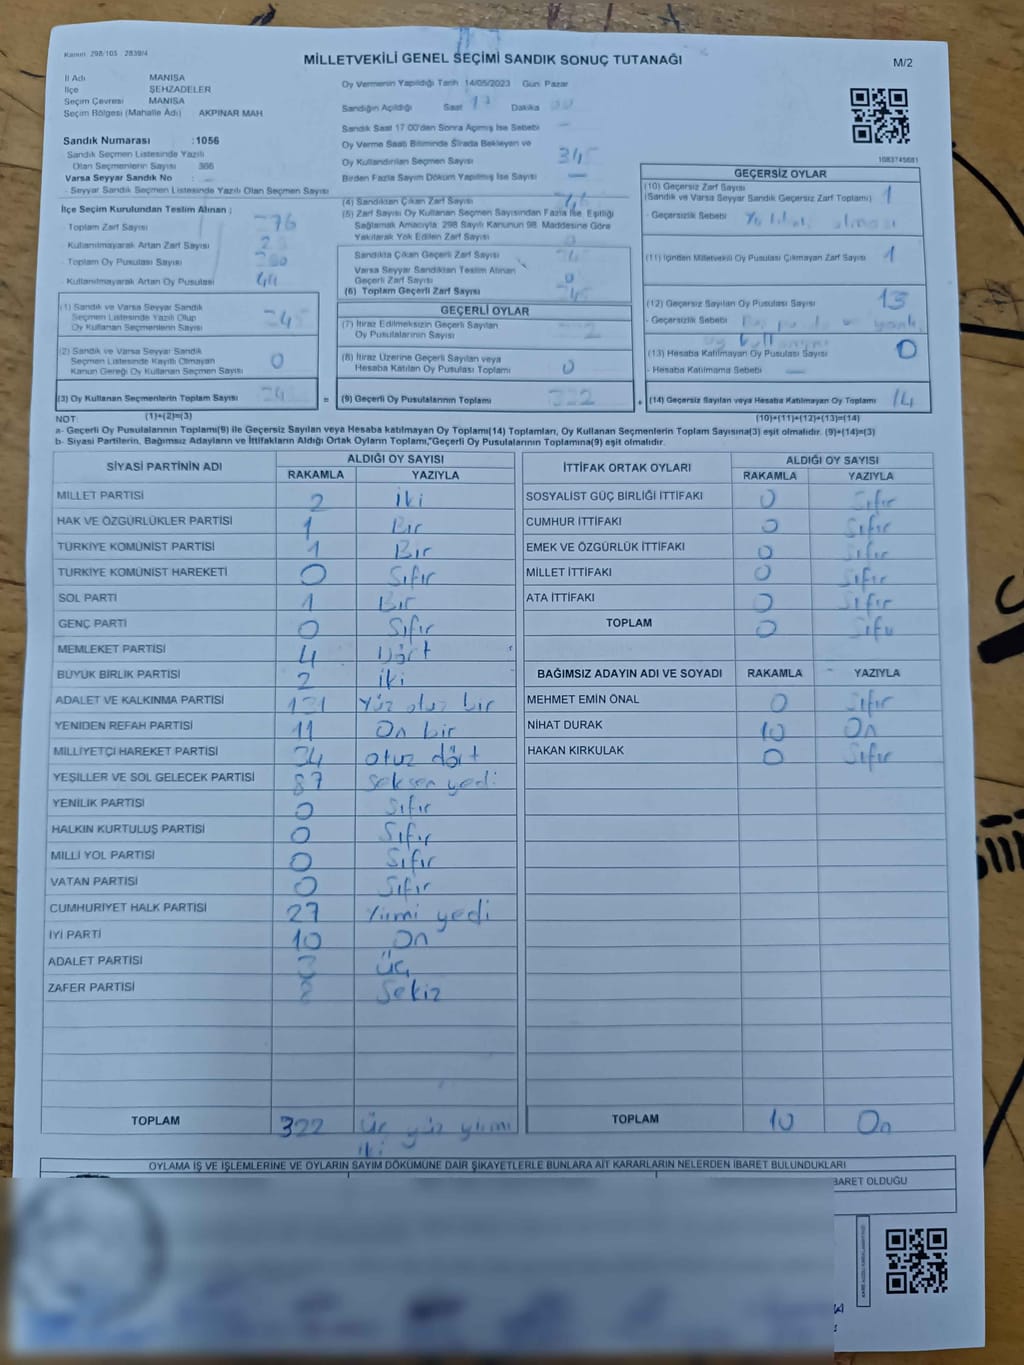 Kanun: 298/105 2839/4
MİLLETVEKİLİ GENEL SEÇİMİ SANDIK SONUÇ TUTANAĞI
M/2
İl Adı MANİSA
İlçe ŞEHZADELER
Seçim Çevresi MANİSA
Seçim Bölgesi (Mahalle Adı) AKPINAR MAH
Sandık Numarası :1056
Sandık Seçmen Listesinde Yazılı
Olan Seçmenlerin Sayısı 366
Varsa Seyyar Sandık No : -
- Seyyar Sandık Seçmen Listesinde Yazılı Olan Seçmen Sayısı
Oy Vermenin Yapıldığı Tarih 14/05/2023 Gün: Pazar
Sandığın Açıldığı Saat Dakika
Sandık Saat 17:00'den Sonra Açımış İse Sebebi -
Oy Verme Saati Bitiminde Sırada Bekleyen ve
Oy Kullandırılan Seçmen Sayısı 345
Birden Fazla Sayım Döküm Yapılmış İse Sayısı -
1083745681
İlçe Seçim Kurulundan Teslim Alınan ;
- Toplam Zarf Sayısı
- Kullanılmayarak Artan Zarf Sayısı
- Toplam Oy Pusulası Sayısı
- Kullanılmayarak Artan Oy Pusulası 44
(1) Sandık ve Varsa Seyyar Sandık
Seçmen Listesinde Yazılı Olup
Oy Kullanan Seçmenlerin Sayısı 345
(2) Sandık ve Varsa Seyyar Sandık
Seçmen Listesinde Kayıtlı Olmayan
Kanun Gereği Oy Kullanan Seçmen Sayısı 0
(3) Oy Kullanan Seçmenlerin Toplam Sayısı 345
(1)+(2)=(3)
(4) Sandıktan Çıkan Zarf Sayısı
(5) Zarf Sayısı Oy Kullanan Seçmen Sayısından Fazla İse, Eşitliği
Sağlamak Amacıyla, 298 Sayılı Kanunun 98. Maddesine Göre
Yakılarak Yok Edilen Zarf Sayısı
Sandıkta Çıkan Geçerli Zarf Sayısı
Varsa Seyyar Sandıktan Teslim Alınan
Geçerli Zarf Sayısı 0
(6) Toplam Geçerli Zarf Sayısı
GEÇERLİ OYLAR
(7) İtiraz Edilmeksizin Geçerli Sayılan
Oy Pusulalarının Sayısı
(8) İtiraz Üzerine Geçerli Sayılan veya
Hesaba Katılan Oy Pusulası Toplamı 0
= (9) Geçerli Oy Pusulalarının Toplamı 332
GEÇERSİZ OYLAR
(10) Geçersiz Zarf Sayısı
(Sandık ve Varsa Seyyar Sandık Geçersiz Zarf Toplamı) 1
- Geçersizlik Sebebi
(11) İçinden Milletvekili Oy Pusulası Çıkmayan Zarf Sayısı 1
(12) Geçersiz Sayılan Oy Pusulası Sayısı 13
- Geçersizlik Sebebi
(13) Hesaba Katılmayan Oy Pusulası Sayısı 0
- Hesaba Katılmama Sebebi -
+ (14) Geçersiz Sayılan veya Hesaba Katılmayan Oy Toplamı 14
(10)+(11)+(12)+(13)=(14)
NOT:
a- Geçerli Oy Pusulalarının Toplamı(9) ile Geçersiz Sayılan veya Hesaba katılmayan Oy Toplamı(14) Toplamları, Oy Kullanan Seçmenlerin Toplam Sayısına(3) eşit olmalıdır. (9)+(14)=(3)
b- Siyasi Partilerin, Bağımsız Adayların ve İttifakların Aldığı Ortak Oyların Toplamı, Geçerli Oy Pusulalarının Toplamına(9) eşit olmalıdır.
SİYASİ PARTİNİN ADI ALDIĞI OY SAYISI
RAKAMLA YAZIYLA
MİLLET PARTİSİ 2 iki
HAK VE ÖZGÜRLÜKLER PARTİSİ 1 Bir
TÜRKİYE KOMÜNİST PARTİSİ 1 Bir
TÜRKİYE KOMÜNİST HAREKETİ 0 Sıfır
SOL PARTİ 1 Bir
GENÇ PARTİ 0 Sıfır
MEMLEKET PARTİSİ 4 Dört
BÜYÜK BİRLİK PARTİSİ 2 iki
ADALET VE KALKINMA PARTİSİ 131 Yüz otuz bir
YENİDEN REFAH PARTİSİ 11 On bir
MİLLİYETÇİ HAREKET PARTİSİ 34 otuz dört
YEŞİLLER VE SOL GELECEK PARTİSİ 87 Seksen yedi
YENİLİK PARTİSİ 0 Sıfır
HALKIN KURTULUŞ PARTİSİ 0 Sıfır
MİLLİ YOL PARTİSİ 0 Sıfır
VATAN PARTİSİ 0 Sıfır
CUMHURİYET HALK PARTİSİ 27 Yirmi yedi
İYİ PARTİ 10 On
ADALET PARTİSİ 3 Üç
ZAFER PARTİSİ 8 Sekiz
TOPLAM 322 Üç yüz yirmi
iki
İTTİFAK ORTAK OYLARI ALDIĞI OY SAYISI
RAKAMLA YAZIYLA
SOSYALİST GÜÇ BİRLİĞİ İTTİFAKI 0 Sıfır
CUMHUR İTTİFAKI 0 Sıfır
EMEK VE ÖZGÜRLÜK İTTİFAKI 0 Sıfır
MİLLET İTTİFAKI 0 Sıfır
ATA İTTİFAKI 0 Sıfır
TOPLAM 0 Sıfır
BAĞIMSIZ ADAYIN ADI VE SOYADI RAKAMLA YAZIYLA
MEHMET EMİN ÖNAL 0 Sıfır
NİHAT DURAK 10 On
HAKAN KIRKULAK 0 Sıfır
TOPLAM 10 On
OYLAMA İŞ VE İŞLEMLERİNE VE OYLARIN SAYIM DÖKÜMÜNE DAİR ŞİKAYETLERLE BUNLARA AİT KARARLARIN NELERDEN İBARET BULUNDUKLARI
BARET OLDUĞU